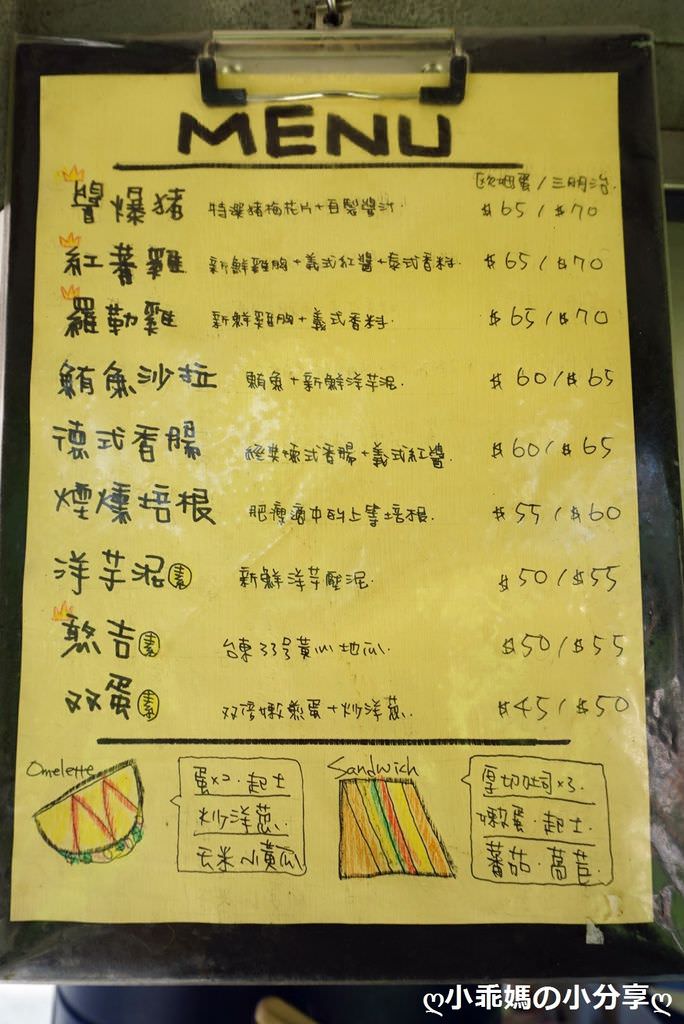 MENU
欧姆蛋/三明治.
醬爆豬 特選豬梅花片+自製醬汁 $65/$70
紅蕃雞 新鮮雞胸+義式紅醬+泰式香料. $65/$70
羅勒雞 新鮮雞胸+義式香料. $65/$70
鮪魚沙拉 鮪魚+新鮮洋芋泥. $60/$65
德式香腸 經典德式香腸+義式紅醬. $60/$65
煙燻培根 肥瘦適中的上等培根. $55/$60
洋芋泥素 新鮮洋芋壓泥. $50/$55
憨吉素 台東33号黃心地瓜. $50/$55
双蛋素 双倍嫩煎蛋+炒洋葱. $45/$50
Omelette
蛋×2.起士
炒洋葱.
玉米.小黃瓜
Sandwich
厚切吐司×3.
嫩蛋.起士.
蕃茄.萵苣.
ღ小乖媽の小分享ღ